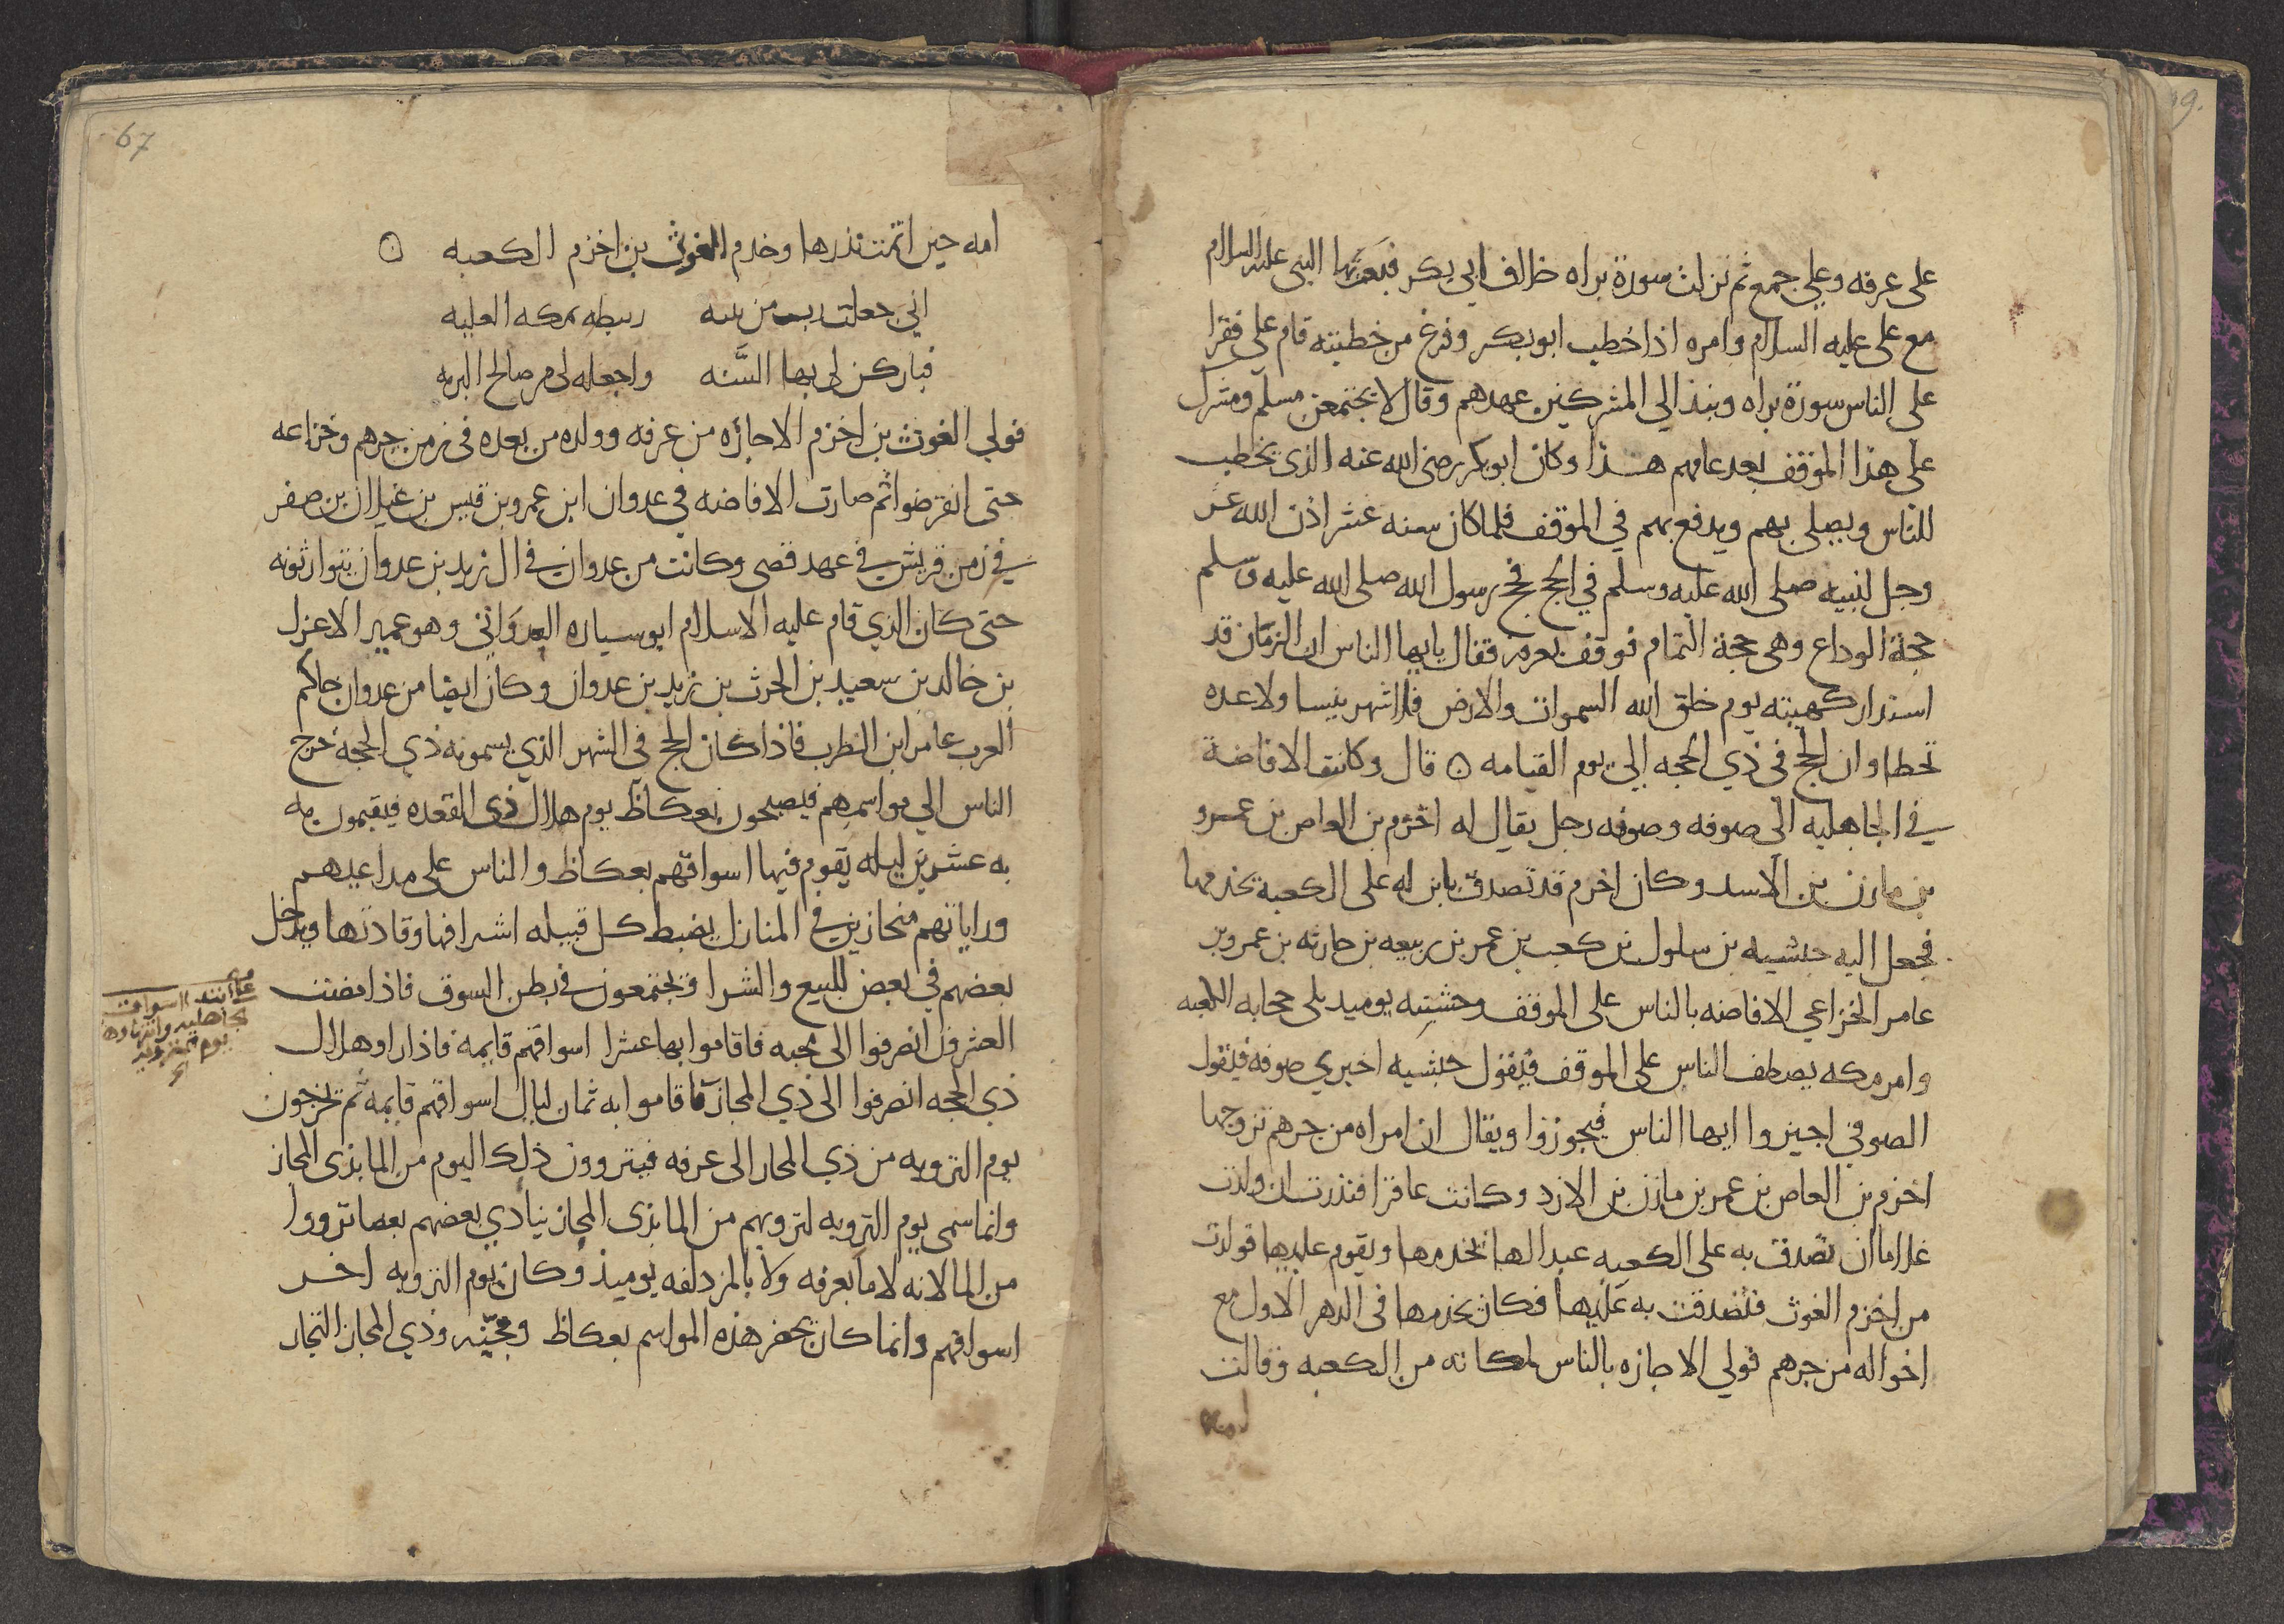 على عرفه وعلي جمع ثم نزلت سورة براه خلاف ابي بكر فبعثها النبى عليه السلام
مع على عليه السلام وامره اذا خطب ابو بكر وفرغ من خطبته قام علي فقرا
على الناس سورة براه ونبذ الي المشركين عهدهم وقال لا يجتمعن مسلم ومشرك
على هذا الموقف بعد عامهم هذا وكان ابو بكر رضى الله عنه الذى يخطب
للناس ويصلى بهم ويدفع بهم في الموقف فلما كان سنه عشر اذن الله عز
وجل لنبيه صلى الله عليه وسلم في الحج فحج رسول الله صلى الله عليه وسلم
حجة الوداع وهى حجة التمام فوقف بعرفه فقال يايها الناس ان الزمان قد
استدار كهيته يوم خلق الله السموات والارض فلا شهر ينسا ولا عده
تخطا وان الحج فى ذي الحجه الي يوم القيامه ٥ قال وكانت الافاضة
في الجاهليه الى صوفه وصوفه رجل يقال له اخزم بن العاص بن عمرو
بن مازن بن الاسد وكان اخزم قد تصدق بابن له على الكعبة يخدمها
فجعل اليه حبشيه بن سلول بن كعب بن عمر بن ربيعه بن حارثه بن عمرو بن
عامر الخزاعي الافاضه بالناس على الموقف وحبشيه يوميد يلى حجابه الكعبه
وامر مكه يصطف الناس على الموقف فيقول حبشيه اخيري صوفه فيقول
الصوفي اجيزوا ايها الناس فيجوزوا ويقال ان امراه من جرهم تزوجها
اخزم بن العاص بن عمر بن مازن بن الازد وكانت عاقرا فنذرت ان ولدت
غلاما ان تصدق به على الكعبه عبدا لها يخدمها ويقوم عليها فولدت
من اخزم الغوث فتصدقت به عليها فكان يخدمها فى الدهر الاول مع
اخواله من جرهم فولي الاجازه بالناس لمكانه من الكعبه وقالت
امه
67
امه حين اتمت نذرها وخدم الغوث بن اخزم الكعبه ٥
اني جعلت رب من بنيه ربيطه بمكه العليه
فباركن لى بها السَّنه واجعله لى من صالح البريه
فولي الغوث بن اخزم الاجازه من عرفه وولده من بعده فى زمن جرهم وخزاعه
حتى انقرضوا ثم صارت الافاضه في عدوان ابن عمرو بن قيس بن غيلان بن ضفر
في زمن قريش في عهد قصى وكانت من عدوان في ال زيد بن عدوان يتوارثونه
حتى كان الذي قام عليه الاسلام ابو سياره العدواني وهو عمير الاعزل
بن خالد بن سعيد بن الحرث بن زيد بن عدوان وكان ايضا من عدوان حاكم
العرب عامر ابن الظرب فاذا كان الحج فى الشهر الذي يسمونه ذي الحجه خرج
الناس الي مواسمهم فيصبحون بعكاظ يوم هلال ذى القعده فيقيمون به
به عشرين ليله يقوم فيها اسواقهم بعكاظ والناس على مداعيهم
وراياتهم منحازين في المنازل يضبط كل قبيله اشرافها وقادتها ويدخل
بعضهم في بعض للبيع والشرا ويجتمعون في بطن السوق فاذا مضت
العشرون انصرفوا الى مجنه فاقاموا بها عشرا اسواقهم قايمه فاذا راو هلال
ذي الحجه انصرفوا الى ذي المجاز فاقاموا به ثمان ليال اسواقهم قايمه ثم يخرجون
يوم الترويه من ذي المجاز الى عرفه فيتروون ذلك اليوم من الما بذى المجاز
وانما سمى يوم الترويه لترويهم من الما بذى المجاز ينادي بعضهم بعضا ترووا
من الما لانه لا ما بعرفه ولا بالمزدلفه يوميذ وكان يوم الترويه اخر
اسواقهم وانما كان يحضر هذه المواسم بعكاظ ومجنّه وذي المجاز التجار